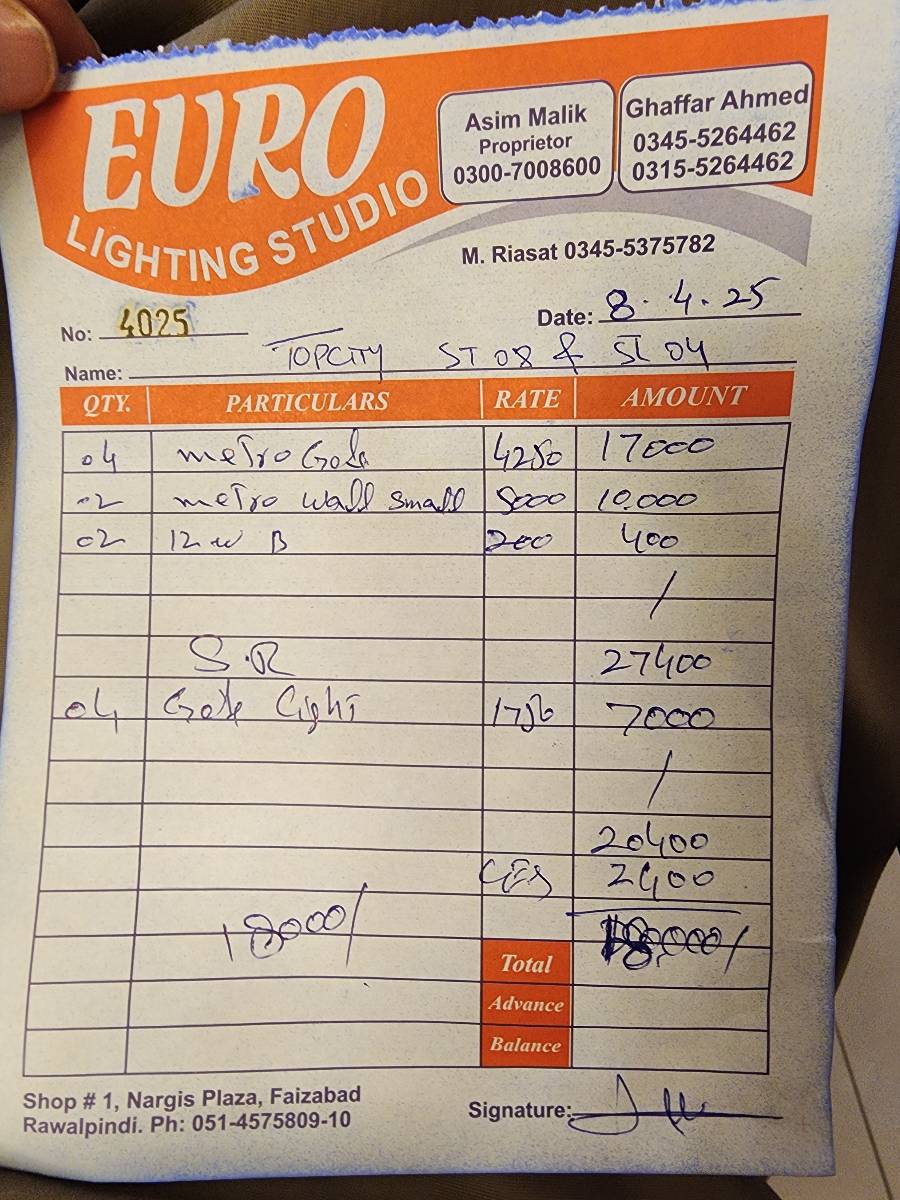 EURO
LIGHTING STUDIO
Asim Malik
Proprietor
0300-7008600
Ghaffar Ahmed
0345-5264462
0315-5264462
M. Riasat 0345-5375782
No: 4025
Date: 8.4.25
Name: TOPCITY ST 08 & ST 04
QTY. PARTICULARS RATE AMOUNT
04 metro Gate 4250 17000
02 metro wall small 5000 10.000
02 12w B 200 400
/
S.R 27400
04 Gate Light 1750 7000
/
20400
Les 2400
18000/ 18,000/
Total
Advance
Balance
Shop # 1, Nargis Plaza, Faizabad
Rawalpindi. Ph: 051-4575809-10
Signature: